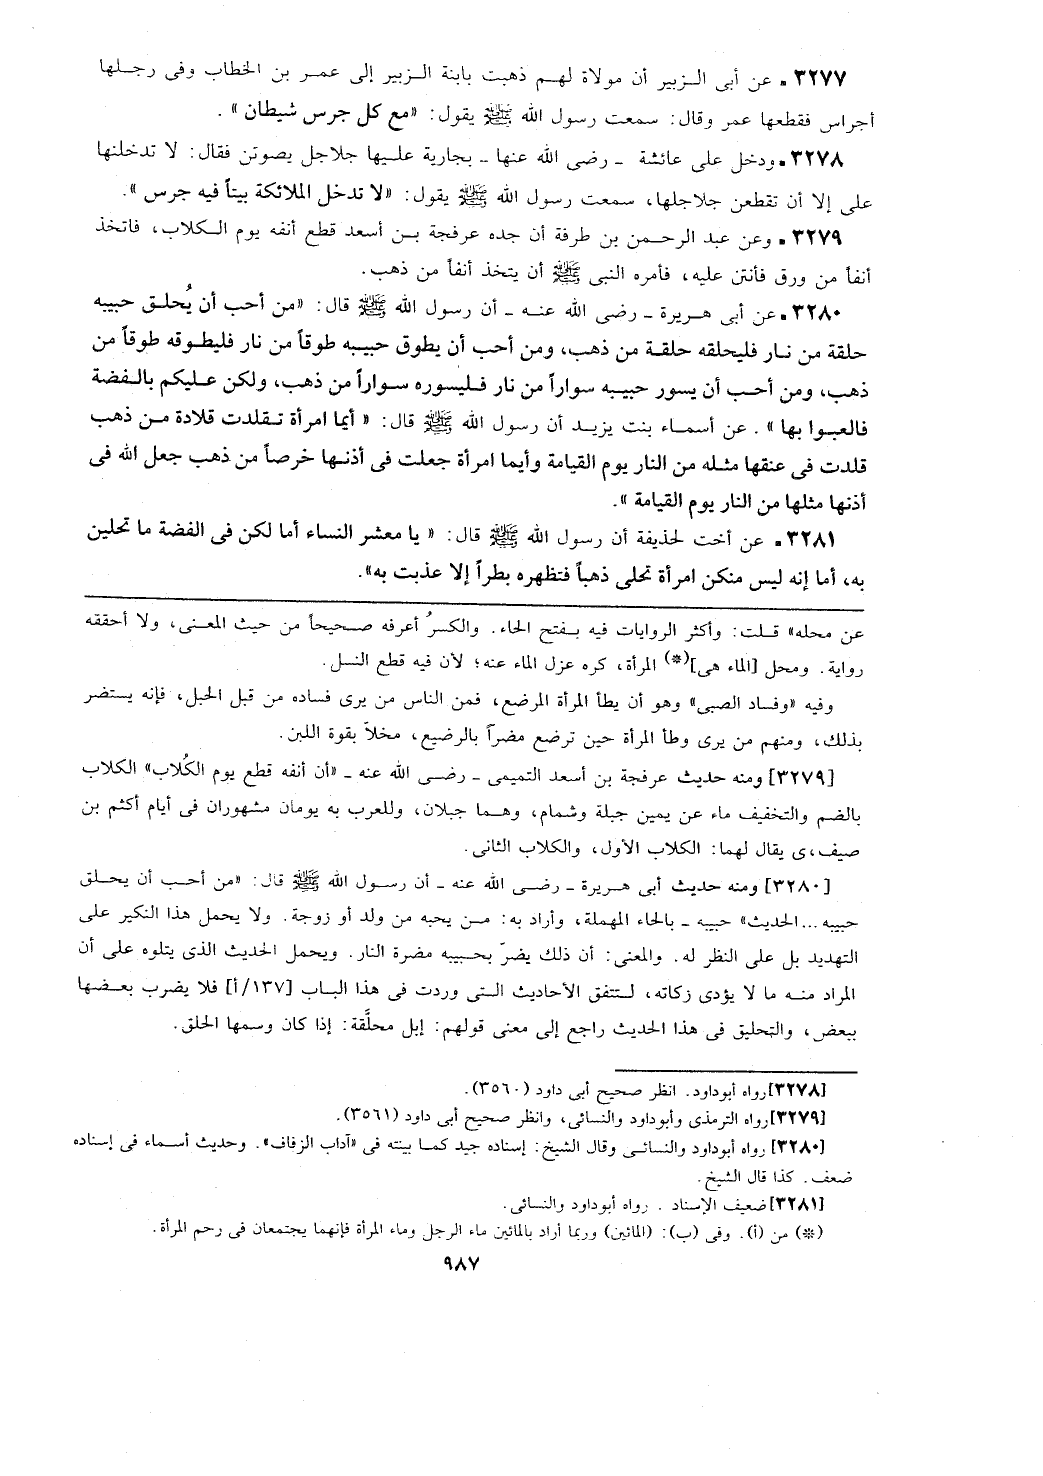 ٣٢٧٧ . عن أبى الـزبير أن مولاة لهـم ذهبت بابنة الـزبير إلى عمـر بن الخطاب وفى رجـلها
أجراس فقطعها عمر وقال: سمعت رسول الله ﷺ يقول: «مع كل جرس شيطان» .
٣٢٧٨ . ودخل على عائشة ـ رضى الله عنها ـ بجارية علـيها جلاجل يصوتن فقال: لا تدخلنها
على إلا أن تقطعن جلاجلها، سمعت رسول الله ﷺ يقول: «لا تدخل الملائكة بيتاً فيه جرس».
٣٢٧٩ . وعن عبد الرحـمن بن طرفة أن جده عرفجة بـن أسعد قطع أنفه يوم الـكلاب، فاتخذ
أنفاً من ورق فأنتن عليه، فأمره النبى ﷺ أن يتخذ أنفاً من ذهب.
٣٢٨٠ . عن أبى هـريرة ـ رضى الله عنـه ـ أن رسول الله ﷺ قال: «من أحب أن يُحلـق حبيبه
حلقة من نـار فليحلقه حلقـة من ذهب، ومن أحب أن يطوق حبيبه طوقاً من نار فليطوقه طوقاً من
ذهب، ومن أحـب أن يسور حبيبه سواراً من نار فـليسوره سـواراً من ذهب، ولكن عـليكم بالـفضة
فالعبـوا بها» . عن أسمـاء بنت يزيـد أن رسول الله ﷺ قال: « أيما امرأة تـقلدت قلادة مـن ذهب
قلدت فى عنقها مثـله من النار يوم القيامة وأيما امرأة جعلت فى أذنـها خرصاً من ذهب جعل الله فى
أذنها مثلها من النار يوم القيامة ».
٣٢٨١ . عن أخت لحذيفة أن رسول الله ﷺ قال: « يا معشر النساء أما لكن فى الفضة ما تحلين
به، أما إنه ليس منكن امرأة تحلى ذهباً فتظهره بطراً إلا عذبت به».
عن محله» قـلت: وأكثر الروايات فيه بـفتح الحاء. والكسرُ أعرفه صـحيحاً من حيث المعنـى، ولا أحققه
رواية. ومحل [الماء هى](*) المرأة، كره عزل الماء عنه؛ لأن فيه قطع النسل.
وفيه «وفساد الصبى» وهو أن يطأ المرأة المرضع، فمن الناس من يرى فساده من قبل الحبل، فإنه يستضر
بذلك، ومنهم من يرى وطأ المرأة حين ترضع مضرآً بالرضيع، مخلاً بقوة اللبن.
[٣٢٧٩] ومنه حديث عرفجة بن أسعد التميمى ـ رضـى الله عنه ـ «أن أنفه قطع يوم الكُلاب» الكلاب
بالضم والتخفيف ماء عن يمين جبلة وشمام، وهـما جبلان، وللعرب به يومان مشهوران فى أيام أكثم بن
صيف،ى يقال لهما: الكلاب الأول، والكلاب الثانى.
[٣٢٨٠] ومنه حديث أبى هـريرة ـ رضـى الله عنه ـ أن رسول الله ﷺ قال: «من أحـب أن يحـلق
حبيبه ...الحديث» حبيبه ـ بالحاء المهملة، وأراد به: مـن يحبه من ولد أو زوجة. ولا يحمل هذا النكير على
التهديد بل على النظر له. والمعنى: أن ذلك يضرّ بحـبيبه مضرة النار. ويحمل الحديث الذى يتلوه على أن
المراد منـه ما لا يؤدى زكاته، لـتتفق الأحاديث التـى وردت فى هذا البـاب [١٣٧/أ] فلا يضرب بعـضها
ببعض، والتحليق فى هذا الحديث راجع إلى معنى قولهم: إبل محلَّقة: إذا كان وسمها الحلق.
[٣٢٧٨]رواه أبوداود. انظر صحيح أبى داود (٣٥٦٠).
[٣٢٧٩]رواه الترمذى وأبوداود والنسائى، وانظر صحيح أبى داود (٣٥٦١).
[٣٢٨٠] رواه أبوداود والنسائـى وقال الشيخ: إسناده جيد كمـا بينته فى «آداب الزفاف». وحديث أسـماء فى إسناده
ضعف. كذا قال الشيخ.
[٣٢٨١]ضعيف الإسناد . رواه أبوداود والنسائى.
(*) من (أ). وفى (ب): (المائين) وربما أراد بالمائين ماء الرجل وماء المرأة فإنهما يجتمعان فى رحم المرأة.
٩٨٧